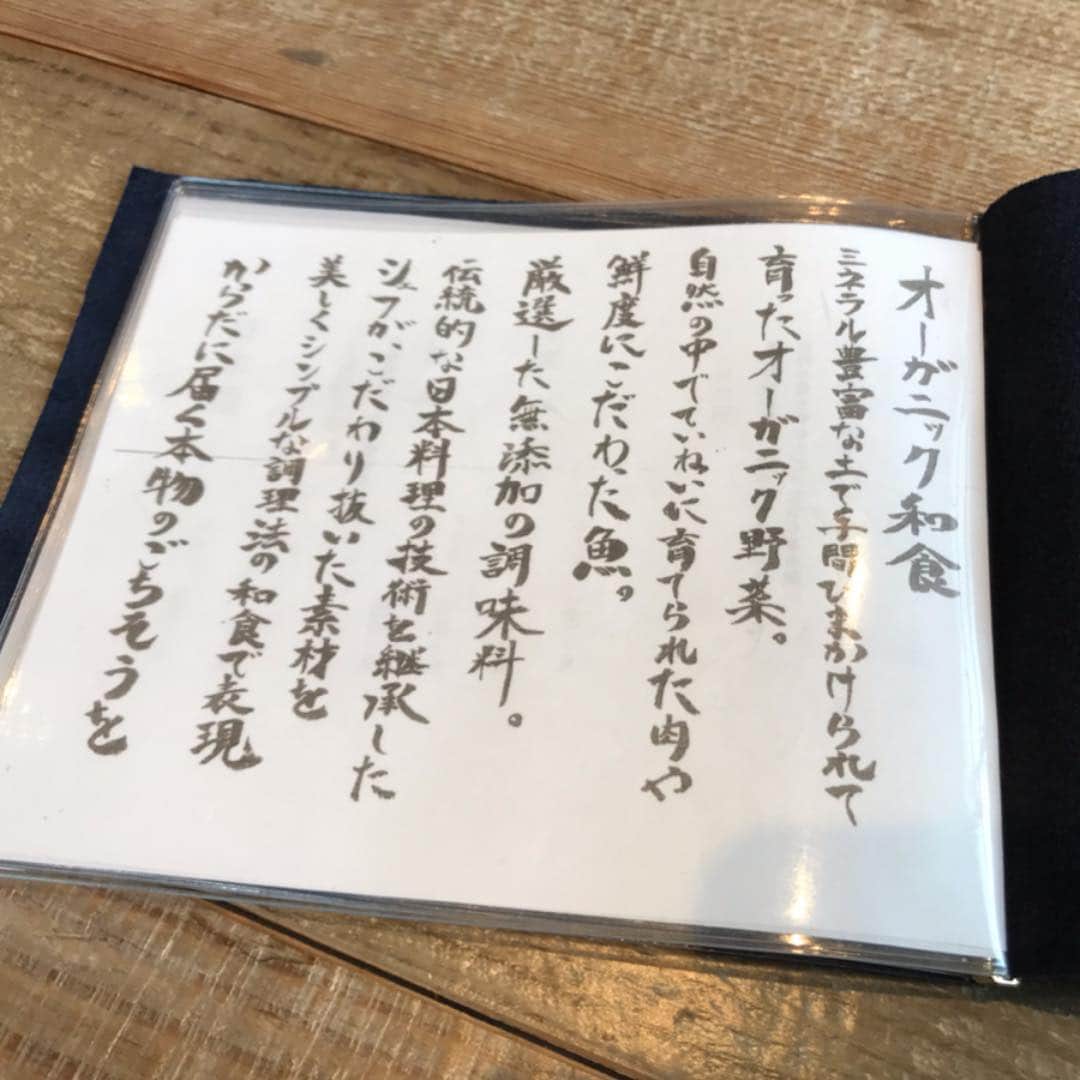 オーガニック和食
ミネラル豊富な土で手間ひまかけられて
育ったオーガニック野菜。
自然の中でていねいに育てられた肉や
鮮度にこだわった魚。
厳選した無添加の調味料。
伝統的な日本料理の技術を継承した
シェフが、こだわり抜いた素材を
美しくシンプルな調理法の和食で表現
からだに届く本物のごちそうを